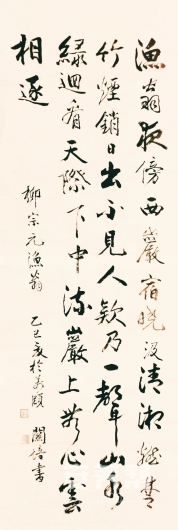 漁翁夜傍西巖宿曉汲清湘燃楚
竹煙銷日出不見人欸乃一聲山水
綠迴看天際下中流巖上無心雲
相逐
柳宗元漁翁
乙巳夏於美頤
闔培書